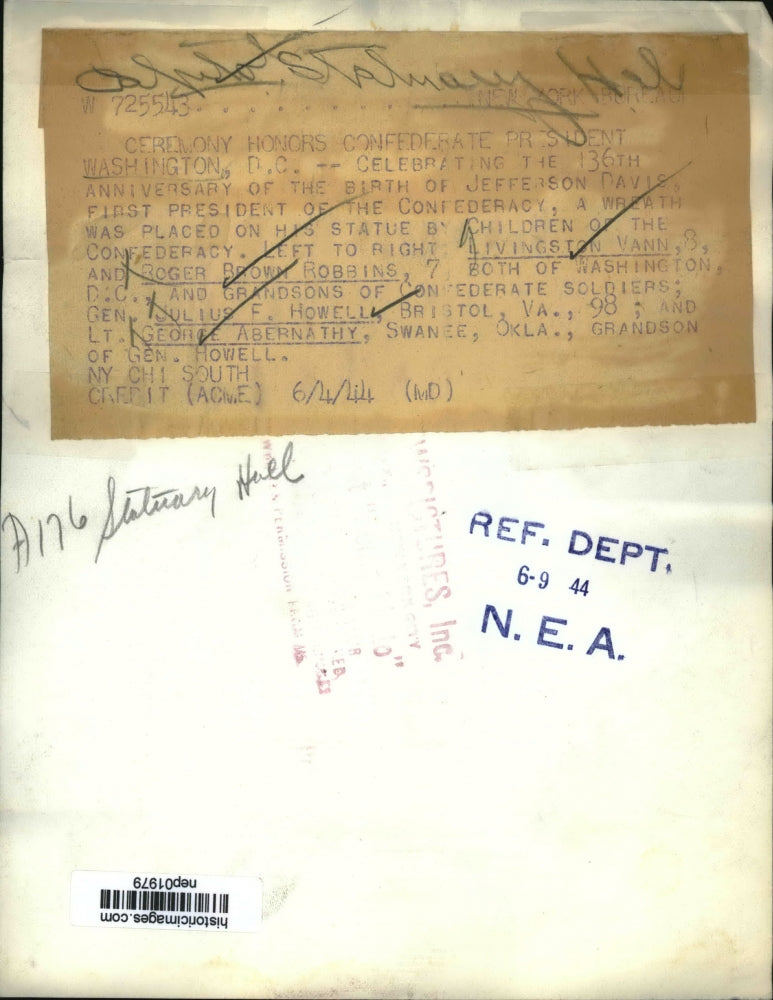 W 725543. . . . . . . . . . NEW YORK BUREAU
CEREMONY HONORS CONFEDERATE PRESIDENT
WASHINGTON, D.C. -- CELEBRATING THE 136TH
ANNIVERSARY OF THE BIRTH OF JEFFERSON DAVIS,
FIRST PRESIDENT OF THE CONFEDERACY, A WREATH
WAS PLACED ON HIS STATUE BY CHILDREN OF THE
CONFEDERACY. LEFT TO RIGHT: LIVINGSTON VANN, 8,
AND ROGER BROWN ROBBINS, 7, BOTH OF WASHINGTON,
D.C., AND GRANDSONS OF CONFEDERATE SOLDIERS;
GEN. JULIUS F. HOWELL, BRISTOL, VA., 98 ; AND
LT. GEORGE ABERNATHY, SWANEE, OKLA., GRANDSON
OF GEN. HOWELL.
NY CHI SOUTH
CREDIT (ACME) 6/4/44 (MD)
Statuary Hall
PICTURES, Inc.
PERMISSION
REF. DEPT.
6-9 44
N. E. A.
nep01979
historicimages.com